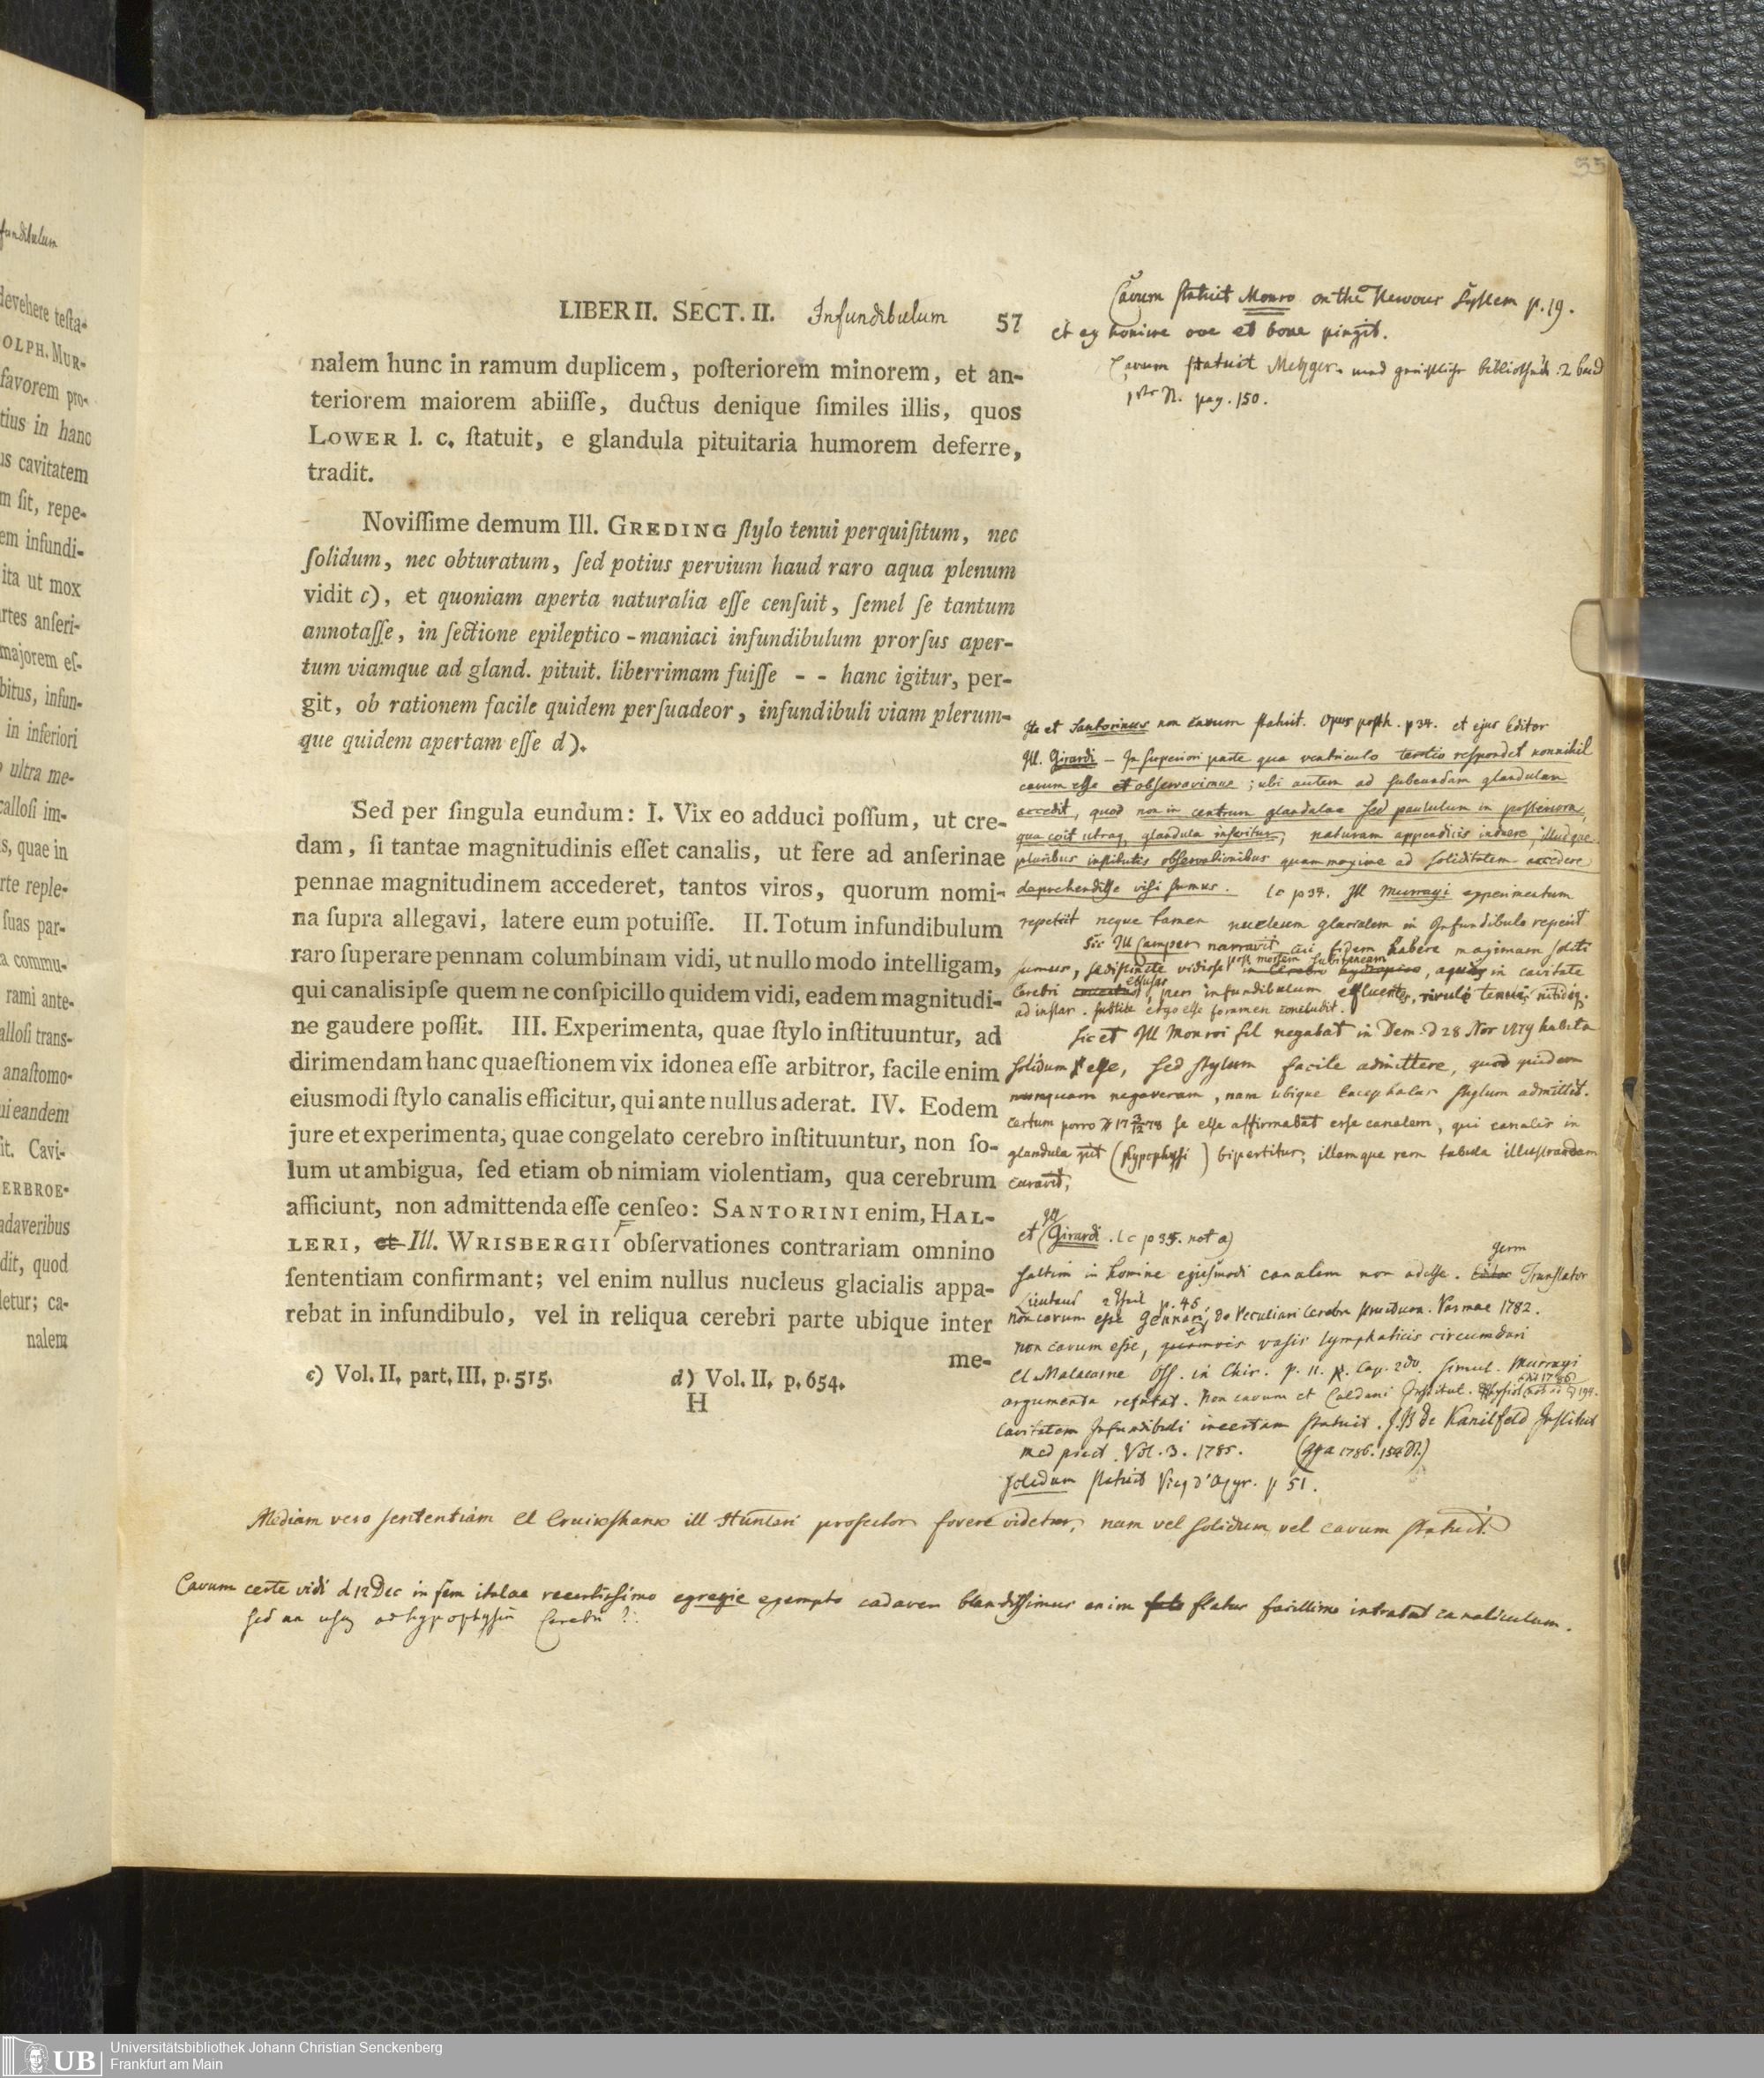 fundibulum
devehere teſta-
OLPH. MUR-
favorem pro-
tius in hanc
us cavitatem
m ſit, repe-
em infundi-
ita ut mox
rtes anſeri-
majorem eſ-
bitus, infun-
in inferiori
ultra me-
calloſi im-
s, quae in
rte reple-
ſuas par-
a commu-
rami ante-
alloſi trans-
anaſtomo-
ui eandem
ſit. Cavi-
ERBROE-
adaveribus
dit, quod
letur; ca-
nalem
LIBER II. SECT. II. Infundibulum 57
nalem hunc in ramum duplicem, poſteriorem minorem, et an-
teriorem maiorem abiiſſe, ductus denique ſimiles illis, quos
LOWER l. c. ſtatuit, e glandula pituitaria humorem deferre,
tradit.
Noviſſime demum Ill. GREDING ſtylo tenui perquiſitum, nec
ſolidum, nec obturatum, ſed potius pervium haud raro aqua plenum
vidit c), et quoniam aperta naturalia eſſe cenſuit, ſemel ſe tantum
annotaſſe, in ſectione epileptico-maniaci infundibulum prorſus aper-
tum viamque ad gland. pituit. liberrimam fuiſſe - - hanc igitur, per-
git, ob rationem facile quidem perſuadeor, infundibuli viam plerum-
que quidem apertam eſſe d).
Sed per ſingula eundum: I. Vix eo adduci poſſum, ut cre-
dam, ſi tantae magnitudinis eſſet canalis, ut fere ad anſerinae
pennae magnitudinem accederet, tantos viros, quorum nomi-
na ſupra allegavi, latere eum potuiſſe. II. Totum infundibulum
raro ſuperare pennam columbinam vidi, ut nullo modo intelligam,
qui canalis ipſe quem ne conſpicillo quidem vidi, eadem magnitudi-
ne gaudere poſſit. III. Experimenta, quae ſtylo inſtituuntur, ad
dirimendam hanc quaeſtionem vix idonea eſſe arbitror, facile enim
eiusmodi ſtylo canalis efficitur, qui ante nullus aderat. IV. Eodem
jure et experimenta, quae congelato cerebro inſtituuntur, non ſo-
lum ut ambigua, ſed etiam ob nimiam violentiam, qua cerebrum
afficiunt, non admittenda eſſe cenſeo: SANTORINI enim, HAL-
LERI, et Ill. WRISBERGII obſervationes contrariam omnino
ſententiam confirmant; vel enim nullus nucleus glacialis appa-
rebat in infundibulo, vel in reliqua cerebri parte ubique inter
me-
c) Vol. II, part. III, p. 515. d) Vol. II, p. 654.
H
35
Cavum ſtatuit Monro on the Nervous Syſtem p. 19.
et ex homine ove et bove pingit.
Cavum ſtatuit Metzger. bibliothek 2 band
pag. 150.
Ita et Santorinus non cavum ſtatuit. Opus poſth. p 34. et ejus Editor
Ill. Girardi — In ſuperiori parte qua ventriculo tertio reſpondet nonnihil
cavum eſſe et obſervavimus; ubi autem ad ſubeundam glandulam
accedit, quod non in centrum glandulae ſed paululum in poſteriora,
qua coit utraq glandula inſeritur, naturam appendicis induere, illudque
pluribus inſtitutis obſervationibus quam maxime ad ſoliditatem accedere
deprehendiſſe viſi ſumus. l c p 34. Ill Murrayi experimentum
repetiit neque tamen nucleum glacialem in Infundibulo reperit
Sic Ill Camper narravit cui fidem habere maximam ſoliti
ſumus, ſe diſtincte vidiſſe poſt mortem ſubitaneam in cerebro hydropico, in cavitate
Cerebri effuſas, per infundibulum effluentes, rivuli tenuis
ad inſtar. ſubtile ergo eſſe foramen concludit.
Sic et Ill Monroi fil negabat in Dem. d 28 Nov 1779 habita
ſolidum eſſe, ſed ſtylum facile admittere, quod quidem
nunquam negaveram, nam ubique Encephalus ſtylum admittit.
certum porro ſe eſſe affirmabat eſſe canalem, qui canalis in
glandula pit (hypophyſi) bipertitur; illamque rem tabula illuſtrandam
curavit,
et Ill Girardi. l c p 35. not a)
ſaltim in homine ejuſmodi canalem non adeſſe. Editor germ Tranſlator
Lieutaud p. 45.
non cavum eſſe Gennari, de Peculiari Cerebri ſtructura. Parmae 1782.
non cavum eſſe, vaſis lymphaticis circumdari
Cl Malacarne Oſſ. in Chir. P. II. Cap. 2do ſimul. Murrayi
argumenta refutat. Non cavum et Caldani Inſtitut. Phyſiol.
Cavitatem Infundibuli incertam ſtatuit. de Inſtitut
med pract. Vol. 3. 1785.
ſolidum ſtatuit Vicq d'Azyr. p 51.
Mediam vero ſententiam Cl Cruikshank ill Hunteri proſector fovere videtur, nam vel ſolidum vel cavum ſtatuit.
Cavum certe vidi d 12 Dec in recentiſſimo egregie exempto cadaver blandiſſimus enim flatus facillime intrabat canaliculum.
ſed an uſq ad hypophyſin Cerebri?
Universitätsbibliothek Johann Christian Senckenberg
Frankfurt am Main
UB